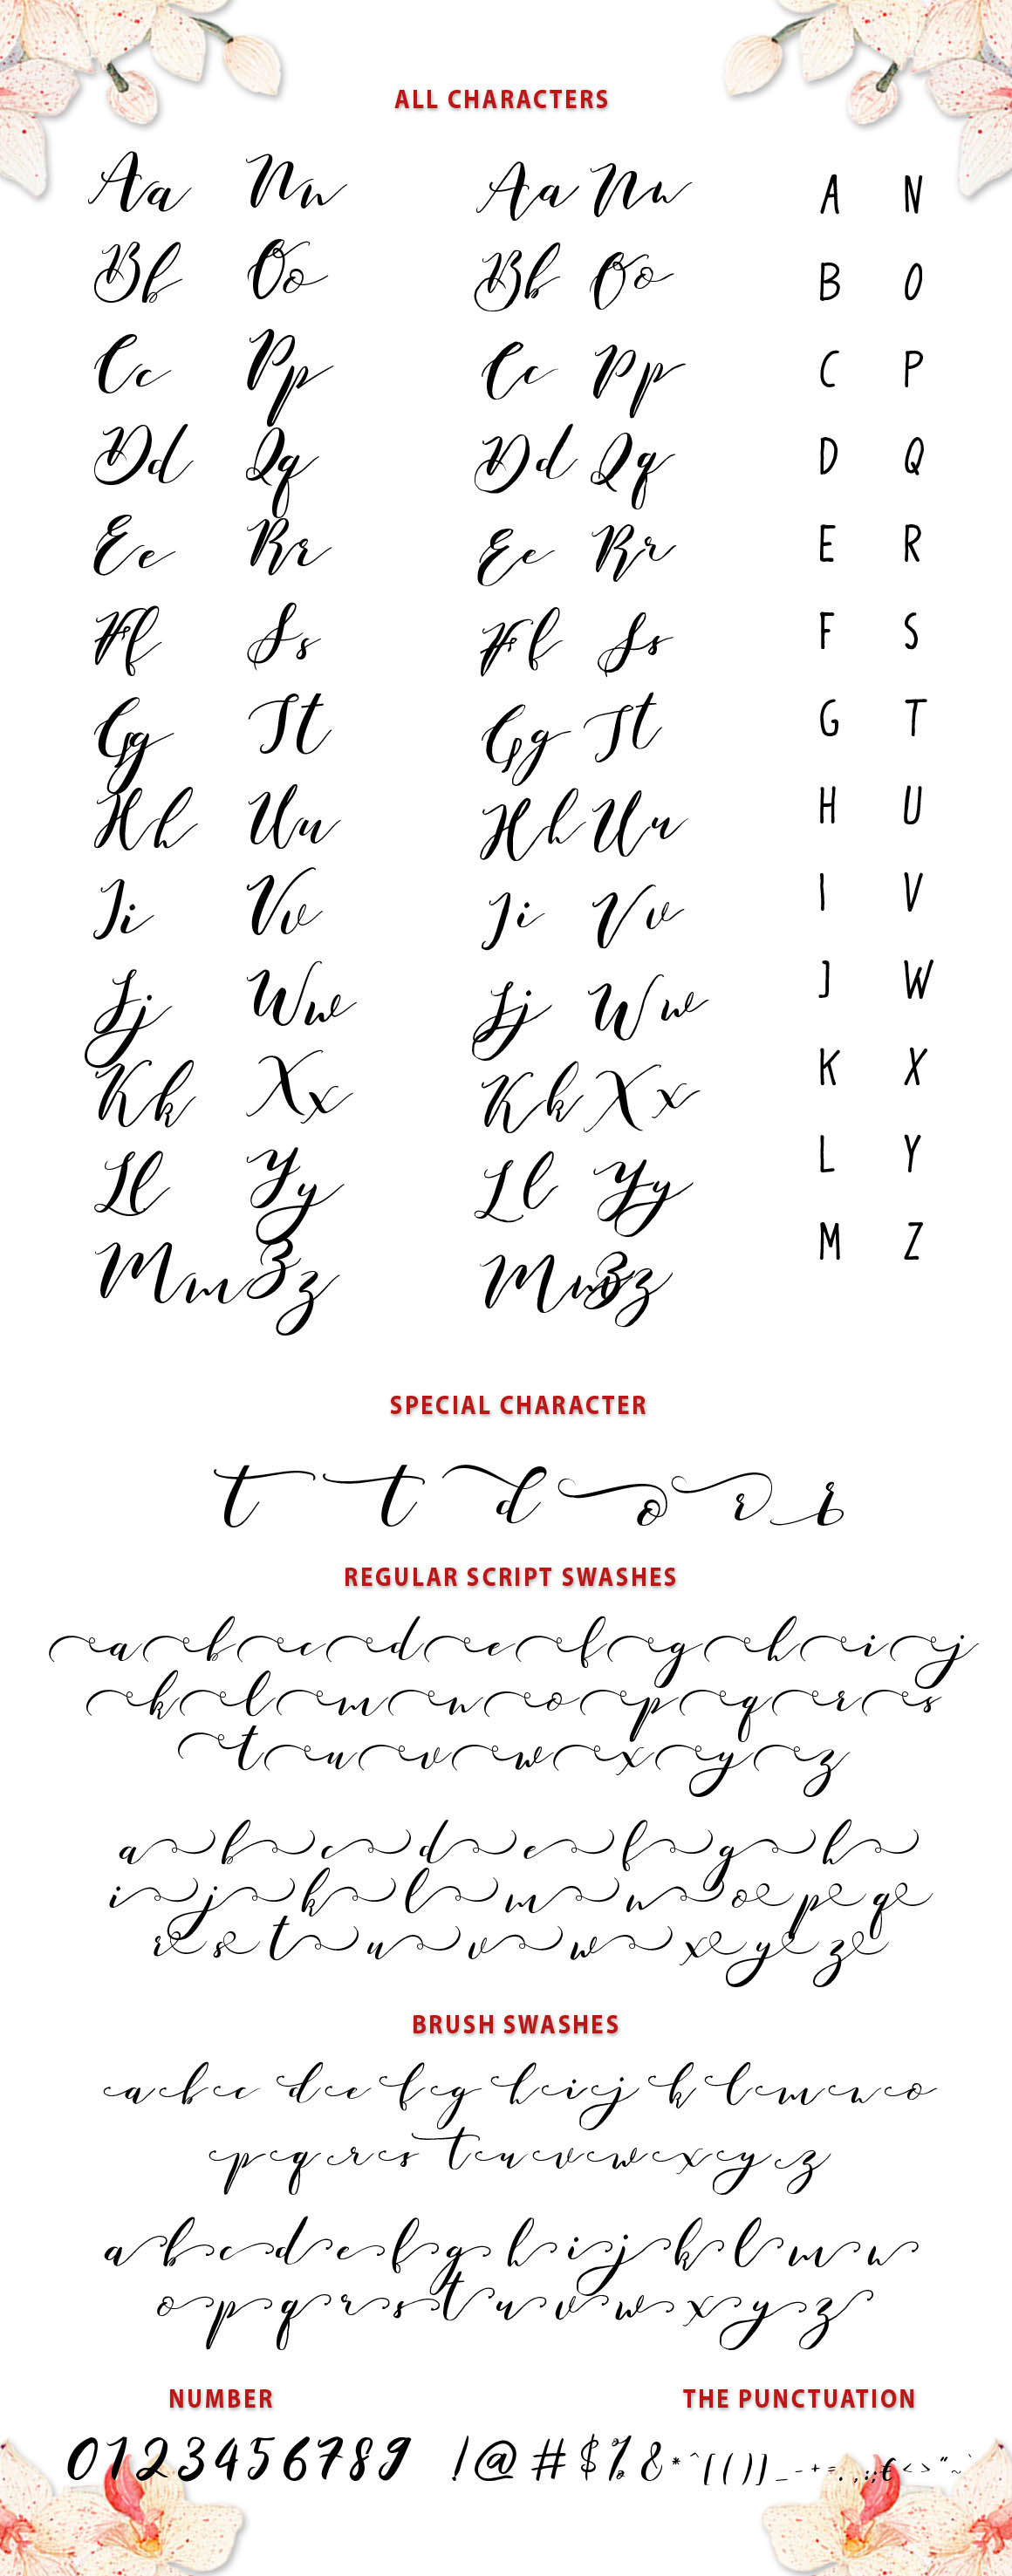 ALL CHARACTERS
Aa Nn Aa Nn A N
Bb Oo Bb Oo B O
Cc Pp Cc Pp C P
Dd Qq Dd Qq D Q
Ee Rr Ee Rr E R
Ff Ss Ff Ss F S
Gg Tt Gg Tt G T
Hh Uu Hh Uu H U
Ii Vv Ii Vv I V
Jj Ww Jj Ww J W
Kk Xx Kk Xx K X
Ll Yy Ll Yy L Y
Mm Zz Mm Zz M Z
SPECIAL CHARACTER
t t d o r r
REGULAR SCRIPT SWASHES
a b c d e f g h i j
k l m n o p q r s
t u v w x y z
a b c d e f g h
i j k l m n o p q
r s t u v w x y z
BRUSH SWASHES
a b c d e f g h i j k l m n o
p q r s t u v w x y z
a b c d e f g h i j k l m n
o p q r s t u v w x y z
NUMBER THE PUNCTUATION
0123456789 !@#$%&*^[()]_-+=.,:;€<>"~`